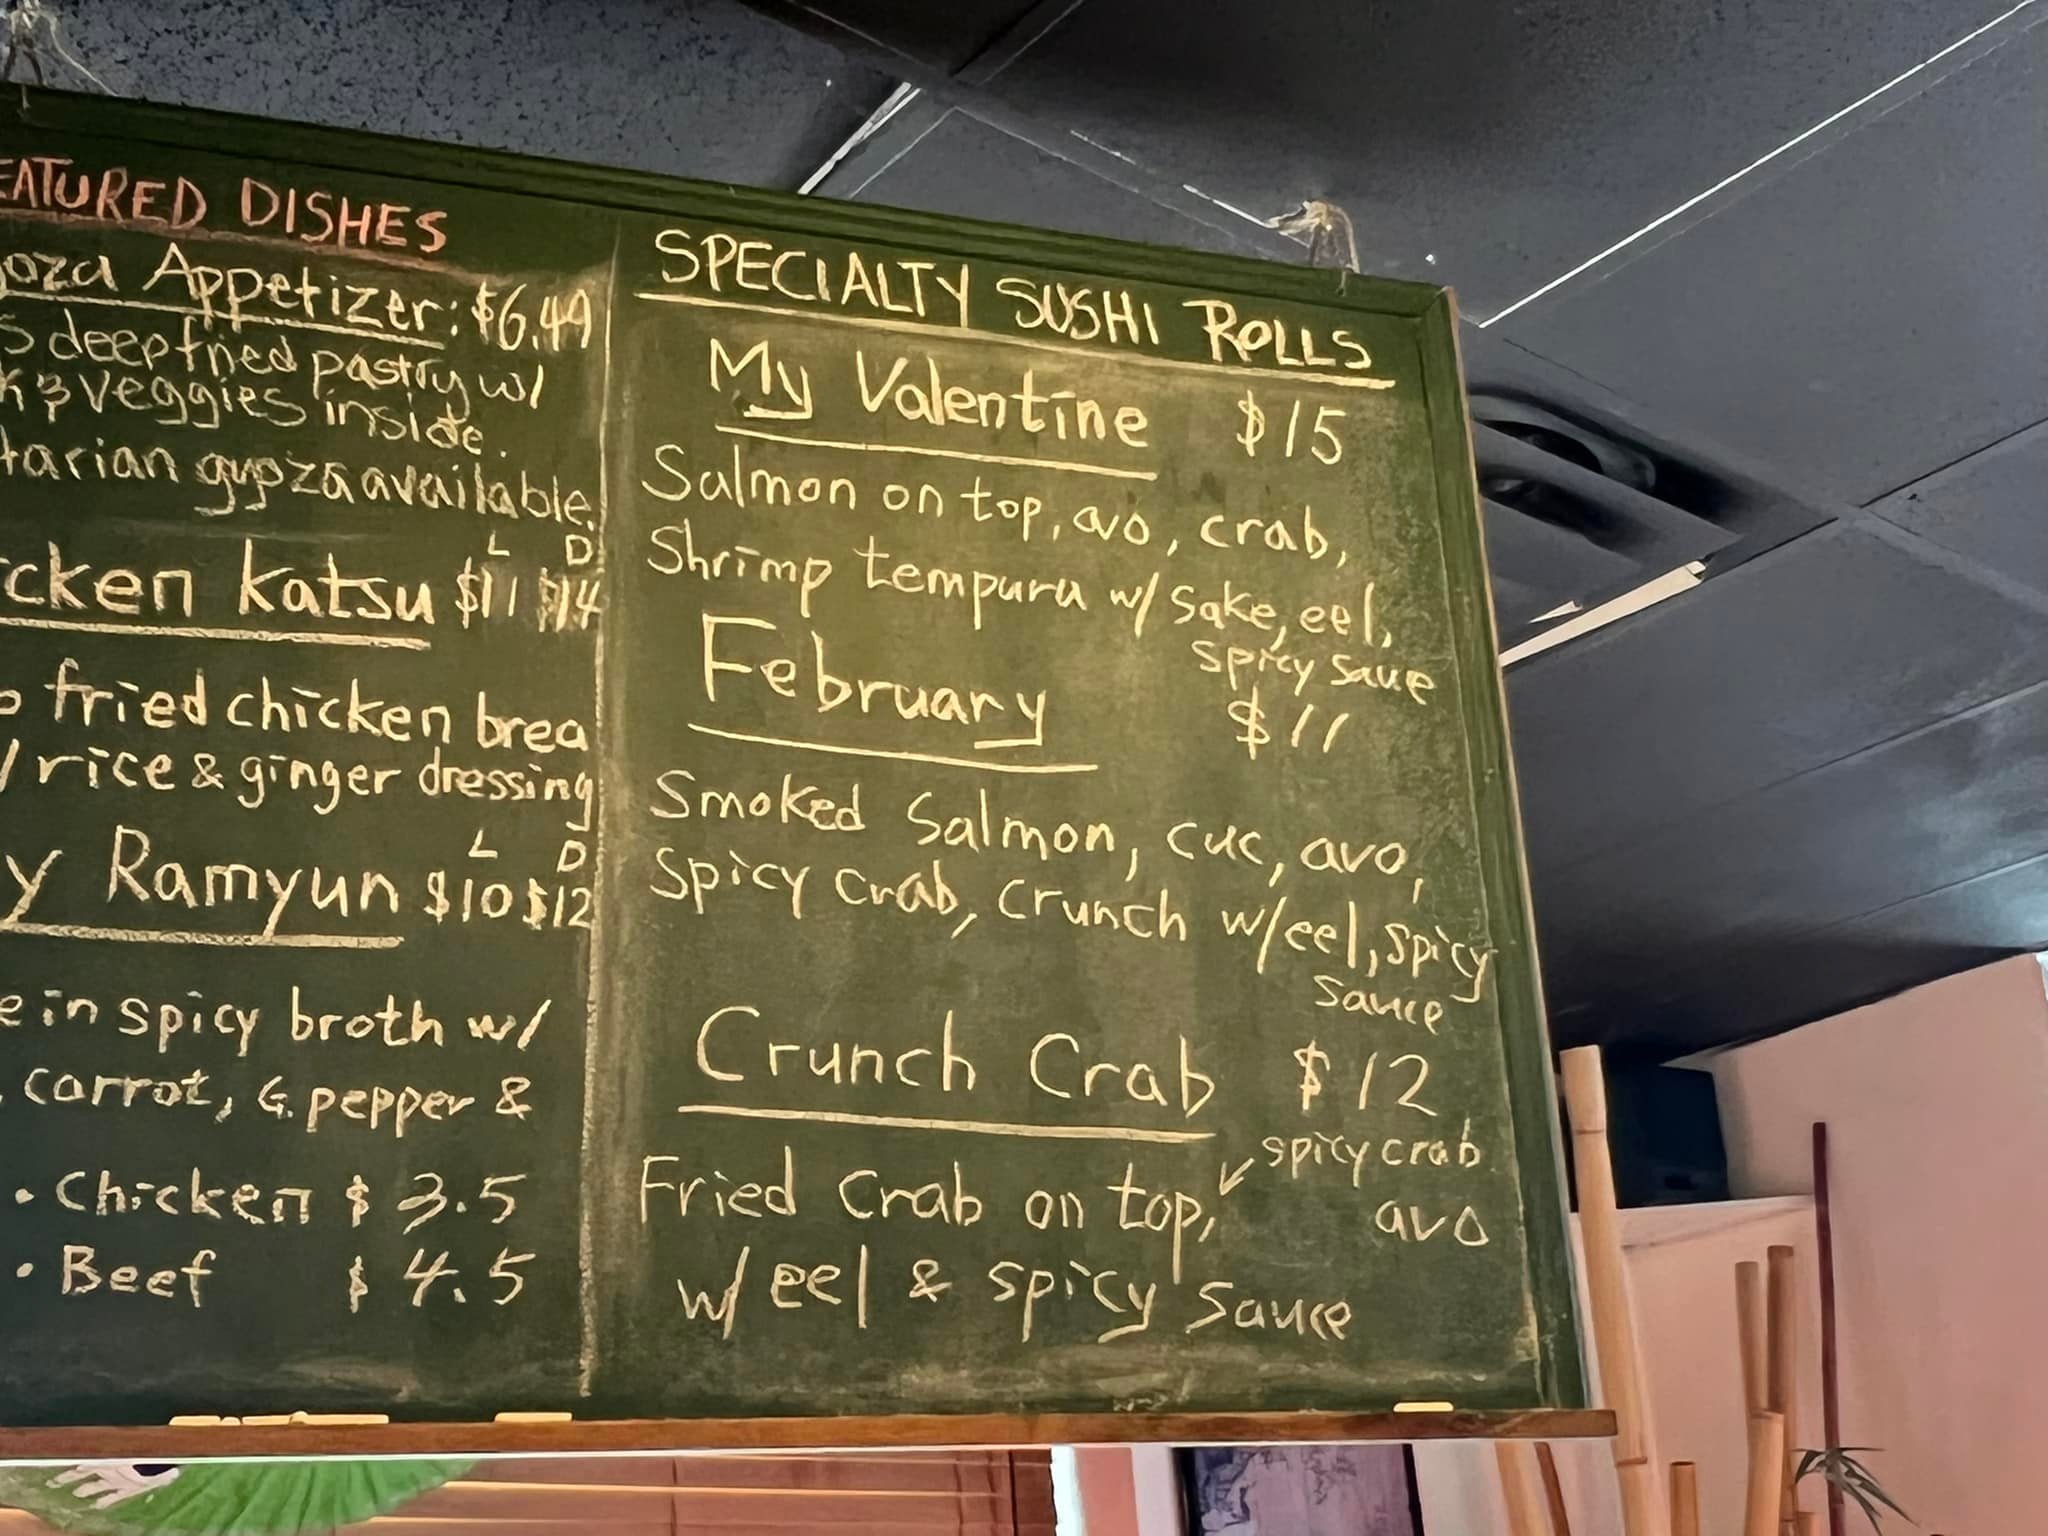 EATURED DISHES
yoza Appetizer: $6.49
5 deep fried pastry w/
k & veggies inside.
tarian gyoza available.
L D
cken Katsu $11 $14
fried chicken brea
/ rice & ginger dressing
L D
y Ramyun $10 $12
e in spicy broth w/
, carrot, G. pepper &
• Chicken $ 3.5
• Beef $ 4.5
SPECIALTY SUSHI ROLLS
My Valentine $15
Salmon on top, avo, crab,
Shrimp tempura w/ sake, eel,
spicy sauce
February $11
Smoked Salmon, cuc, avo,
Spicy crab, crunch w/ eel, spicy
sauce
Crunch Crab $12
spicy crab
Fried crab on top, avo
w/ eel & spicy sauce